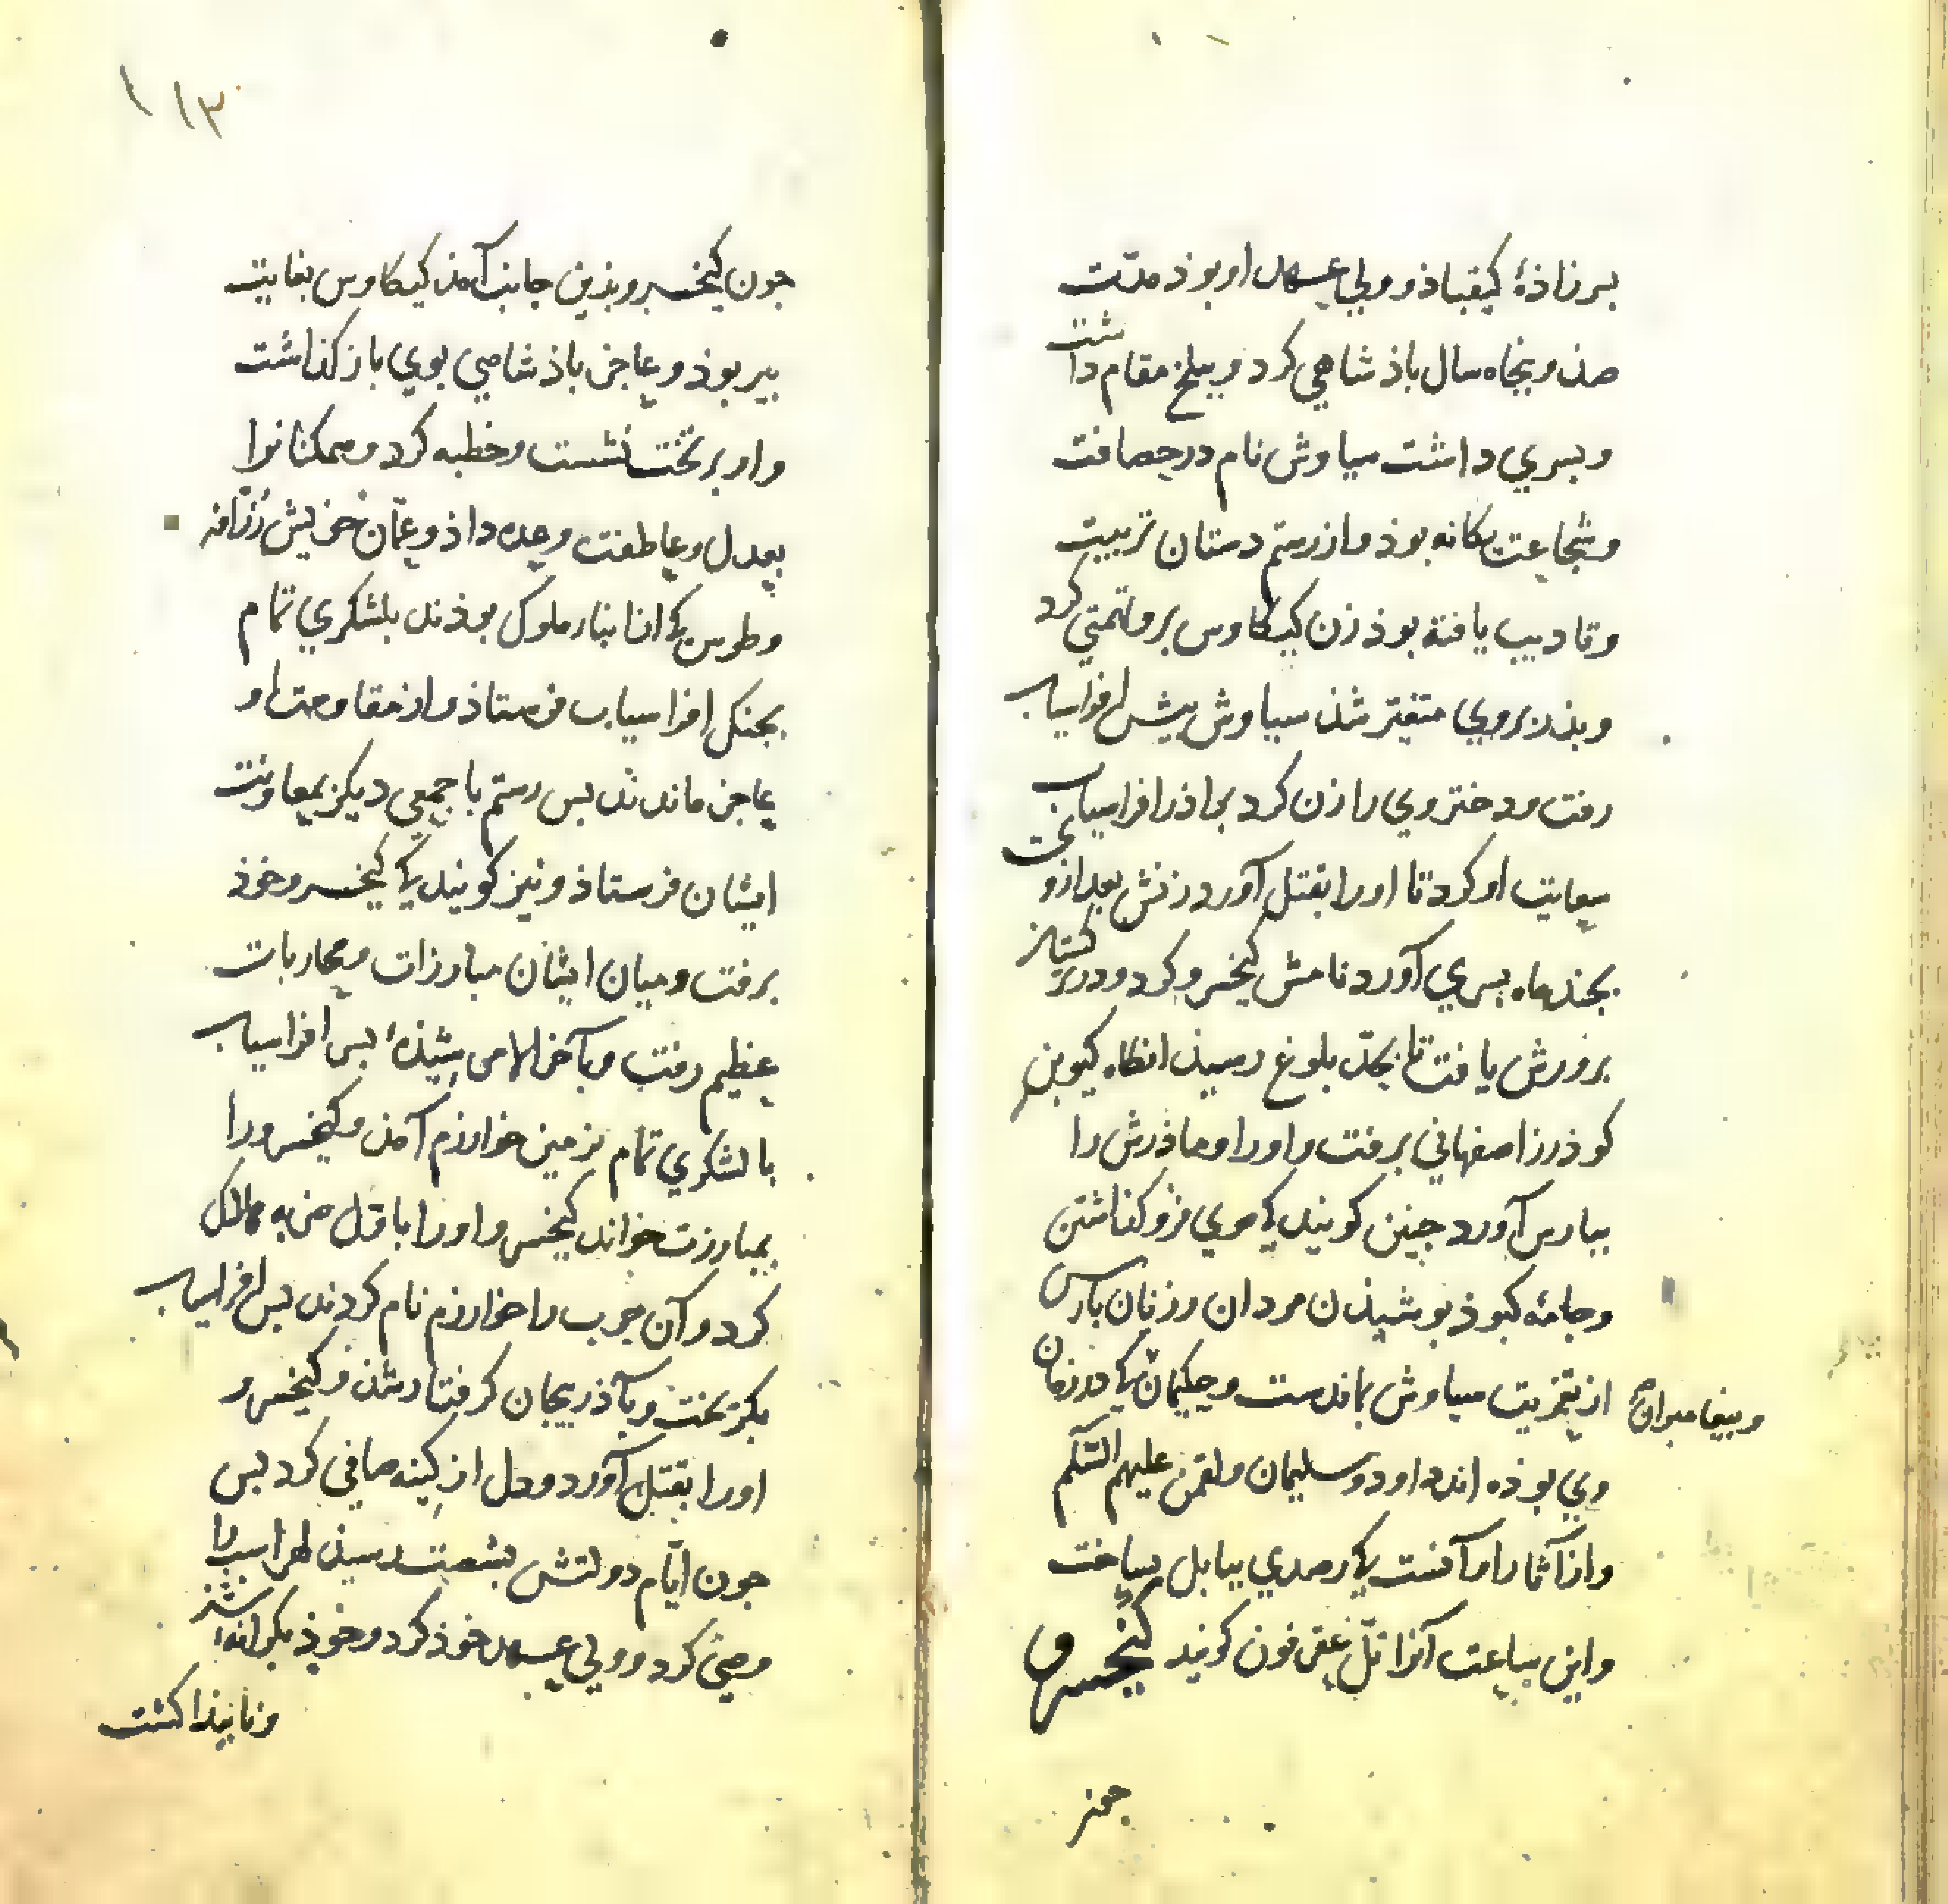 بسرزاذهٔ کیقباذ و ولي عهد او بوذ مدّت
صذ و پنجاه سال باذشاهي کرد و ببلخ مقام داشت
و بسري داشت سیاوش نام در حصافت
و شجاعت یکانه بوذ و از رستم دستان تربیت
و تادیب یافته بوذ زن کیکاوس برو تهمتي کرد
و بذر بروي متغیّر شذ سیاوش بیش افراسیاب
رفت و دختر وي را زن کرد براذر افراسیاب
سعایت او کرد تا اورا بقتل آورد زنش بعد ازو
بجند ماه بسري آورد نامش کیخسرو کرد و در ترکستان
برورش یافت تا بحدّ بلوغ رسیذ انکاه کیو بن
کوذرز اصفهاني برفت و اورا و ماذرش را
ببارس آورد جنین کویند که موي فرو کذاشتن
و جامهٔ کبوذ بوشیذن مردان و زنان بارس
از تعزیت سیاوش بماندست و حکیمان که در زمان
و بیغامبران
وي بوذه اند داود و سلیمان و لقمن علیهم السّلم
و از آثار او آنست که رصدي ببابل بساخت
و این ساعت آنرا تلّ عقرقوف کویند کیخسرو
جون
۱۱۳
جون کیخسرو بذین جانب آمذ کیکاوس بغایت
بیر بوذ و عاجز باذشاهي بوي باز کذاشت
و او بر تخت نشست و خطبه کرد و همکنانرا
بعدل و عاطفت وعده داذ و عمّان خویش زرافه
و طوس که ابناء ملوک بوذند بلشکري تمام
بجنک افراسیاب فرستاذ و از مقاومت او
عاجز ماندند بس رستم با جمعي دیکر بمعاونت
ایشان فرستاذ و نیز کویند که کیخسرو خوذ
برفت و میان ایشان مبارزات و محاربات
عظیم رفت و بآخر الامر بس افراسیاب
با لشکري تمام بزمین خوارزم آمذ و کیخسرو را
بمبارزت خواند کیخسرو اورا باوّل ضربه هلاک
کرد و آن حرب را خوارزم نام کردند بس افراسیاب
بکریخت و بآذربیجان کرفتار شذ و کیخسرو
اورا بقتل آورد و دل از کینه صافي کرد بس
جون ایّام دولتش بشصت رسیذ لهراسب را
وصيّ کرد و ولي عهد خوذ کرد و خوذ بکرانه شذ
و نابیذا کشت